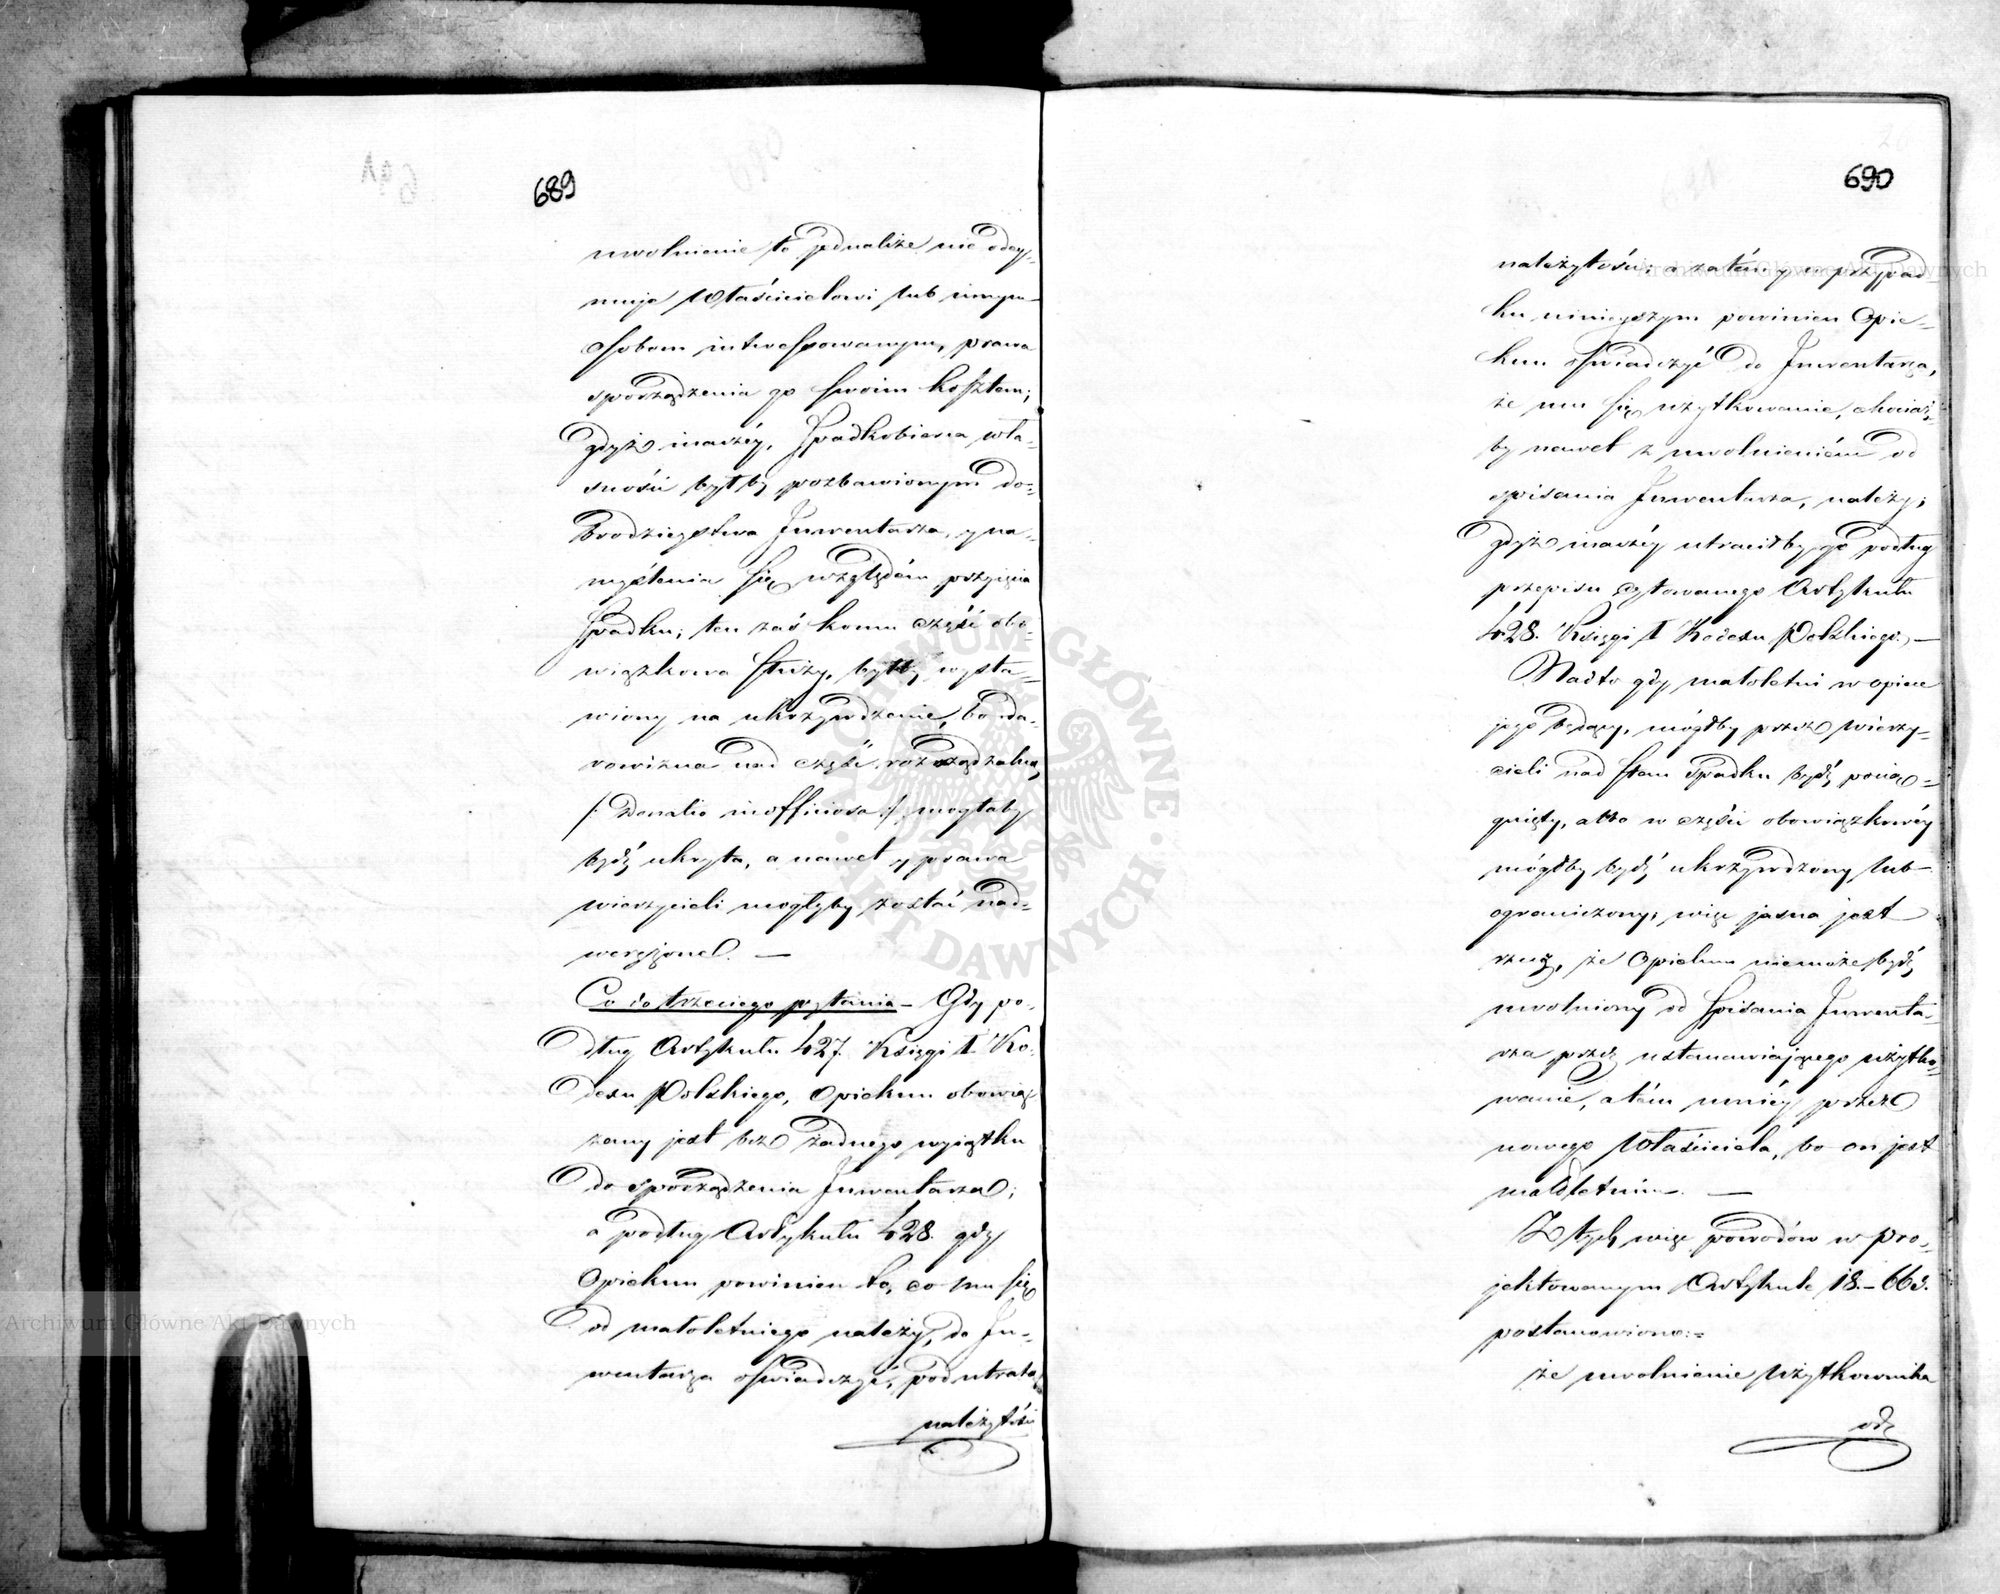 689
uwolnienie to jednakże nie odey-
muje Właścicielowi lub innym
osobom interessowanym, prawa
sporządzenia go swoim kosztem;
gdyż inaczéy, Spadkobierca wła-
sności byłby pozbawionym do-
brodzieystwa Inwentarza, y na-
myślenia się względem przyięcia
Spadku; ten zaś komu część obo-
wiązkowa służy, byłby wysta-
wiony na ukrzywdzenie, bo da-
rowizna nad część rozrządzalną
/: Donatio inofficiosa :/ mogłaby
bydź ukryta, a nawet y prawa
wierzycieli mogłyby zostać nad-
weręzone. —
Co do trzeciego pytania – Gdy po-
dług Artykułu 427. Księgi I Ko-
dexu Polskiego, Opiekun obowią-
zany jest bez żadnego wyiątku
do sporządzenia Inwentarza;
a podług Artykułu 428. gdy
Opiekun powinien to, co mu się
od małoletniego należy, do In-
wentarza oświadczyć, pod utratą
należytości
690
należytości; a zatém y w przypad-
ku ninieyszym powinien Opie-
kun oświadczyć do Inwentarza,
że mu się użytkowanie, chociaż-
by nawet z uwolnieniém od
spisania Inwentarza, należy;
gdyż inaczéy utraciłby go podług
przepisu cytowanego Artykułu
428. Księgi I Kodexu Polskiego. —
Nadto gdy małoletni w opiece
jego będący, mógłby przez wierzy-
cieli nad stan Spadku bydź pocią-
gnięty, albo w części obowiązkowéy
mógłby bydź ukrzywdzony lub
ograniczony; więc jasna jest
rzecz, że Opiekun niemoże bydź
uwolniony od spisania Inwenta-
rza przez ustanawiającego użytko-
wanie, a tém mniéy przez
nowego Właściciela, bo on jest
małoletnim. —
Z tych więc powodów w pro-
jektowanym Artykule 18.–663.
postanowiono:=
że uwolnienie Użytkownika
od
Archiwum Główne Akt Dawnych
Archiwum Główne Akt Dawnych
ARCHIWUM GŁÓWNE · AKT DAWNYCH ·